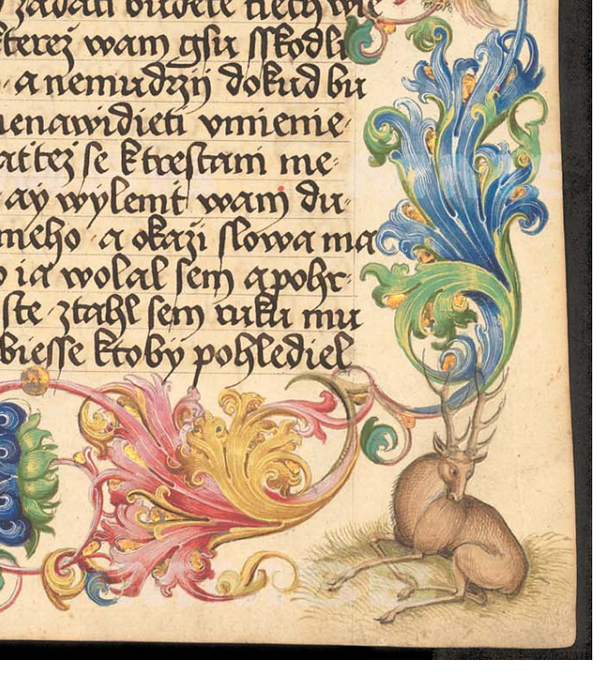 zadati budete tiech wie
kterež wam gsu sskodli
a nemudrzij dokud bu
nenawidieti vmienie
at tež se k trestani me-
ay wylemt wam du-
meho a okaži slowa ma
ia wolal sem apohr-
ste ztahl sem ruku mu
biesse ktoby pohlediel